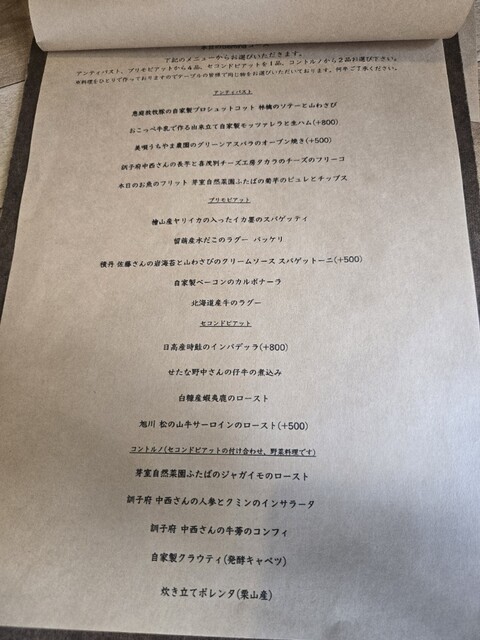 下記のメニューからお選びいただきます。
アンティパスト、プリモピアットから4品、セコンドピアットを1品、コントルノから2品お選び下さい。
※料理をひとりで作っておりますのでテーブルの皆様で同じ物をお選びいただいております。何卒ご了承ください。
アンティパスト
恵庭放牧豚の自家製プロシュットコット 林檎のソテーと山わさび
おこっぺ牛乳で作る出来立て自家製モッツァレラと生ハム(+800)
美唄うちやま農園のグリーンアスパラのオーブン焼き(+500)
訓子府中西さんの長芋と喜茂別チーズ工房タカラのチーズのフリーコ
本日のお魚のフリット 芽室自然菜園ふたばの菊芋のピュレとチップス
プリモピアット
檜山産ヤリイカの入ったイカ墨のスパゲッティ
留萌産水だこのラグー パッケリ
積丹 佐藤さんの岩海苔と山わさびのクリームソース スパゲットーニ(+500)
自家製ベーコンのカルボナーラ
北海道産牛のラグー
セコンドピアット
日高産時鮭のインパデッラ(+800)
せたな野中さんの仔牛の煮込み
白糠産蝦夷鹿のロースト
旭川 松の山牛サーロインのロースト(+500)
コントルノ(セコンドピアットの付け合わせ、野菜料理です)
芽室自然菜園ふたばのジャガイモのロースト
訓子府 中西さんの人参とクミンのインサラータ
訓子府 中西さんの牛蒡のコンフィ
自家製クラウティ(発酵キャベツ)
炊き立てポレンタ(栗山産)